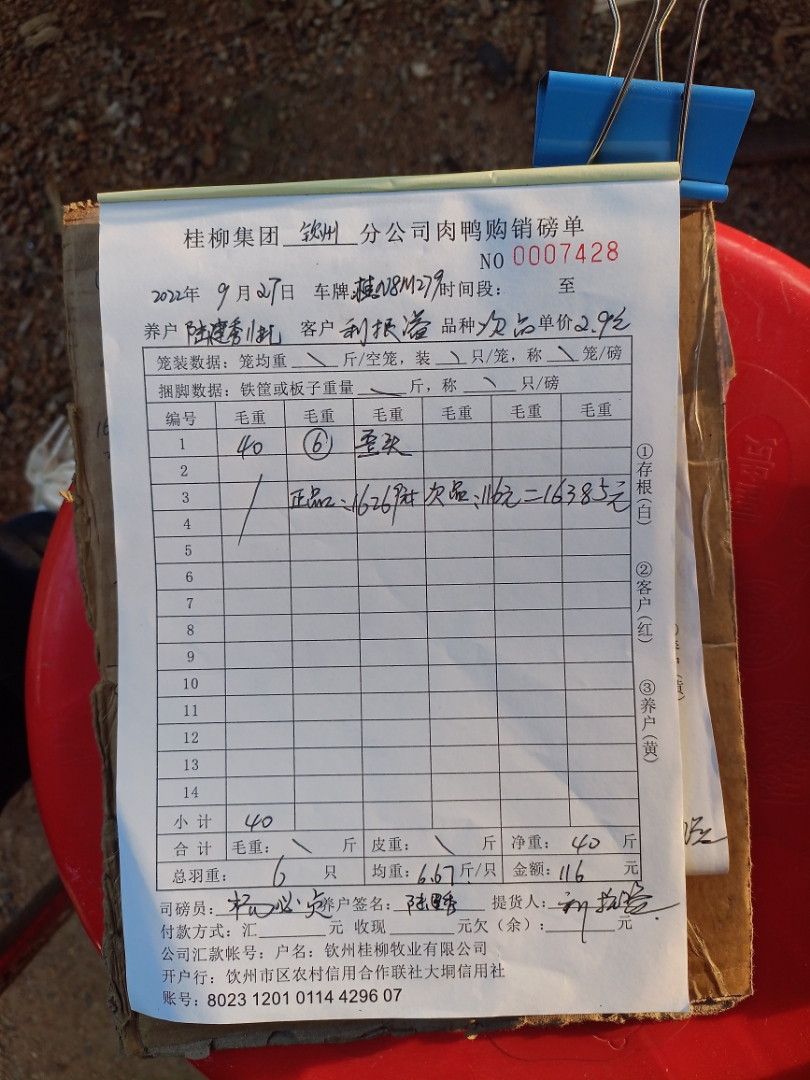 桂柳集团 钦州 分公司肉鸭购销磅单
NO 0007428
2022年 9月27日 车牌:桂N8M279 时间段: 至
养户 客户 利振溢 品种 次品 单价 2.9元
笼装数据:笼均重 \ 斤/空笼,装 \ 只/笼,称 \ 笼/磅
捆脚数据:铁筐或板子重量 \ 斤,称 \ 只/磅
编号 毛重 毛重 毛重 毛重 毛重 毛重
1 40 ⑥ 歪头
2
3 正品:16269元 次品:116元=16385元
4
5
6
7
8
9
10
11
12
13
14
小计 40
合计 毛重: \ 斤 皮重: \ 斤 净重: 40 斤
总羽重: 6 只 均重:6.67斤/只 金额:116 元
司磅员: 养户签名: 提货人:利振溢
付款方式:汇 元 收现 元欠(余): 元
公司汇款帐号:户名:钦州桂柳牧业有限公司
开户行:钦州市区农村信用合作联社大垌信用社
账号:8023 1201 0114 4296 07
①存根(白)
②客户(红)
③养户(黄)